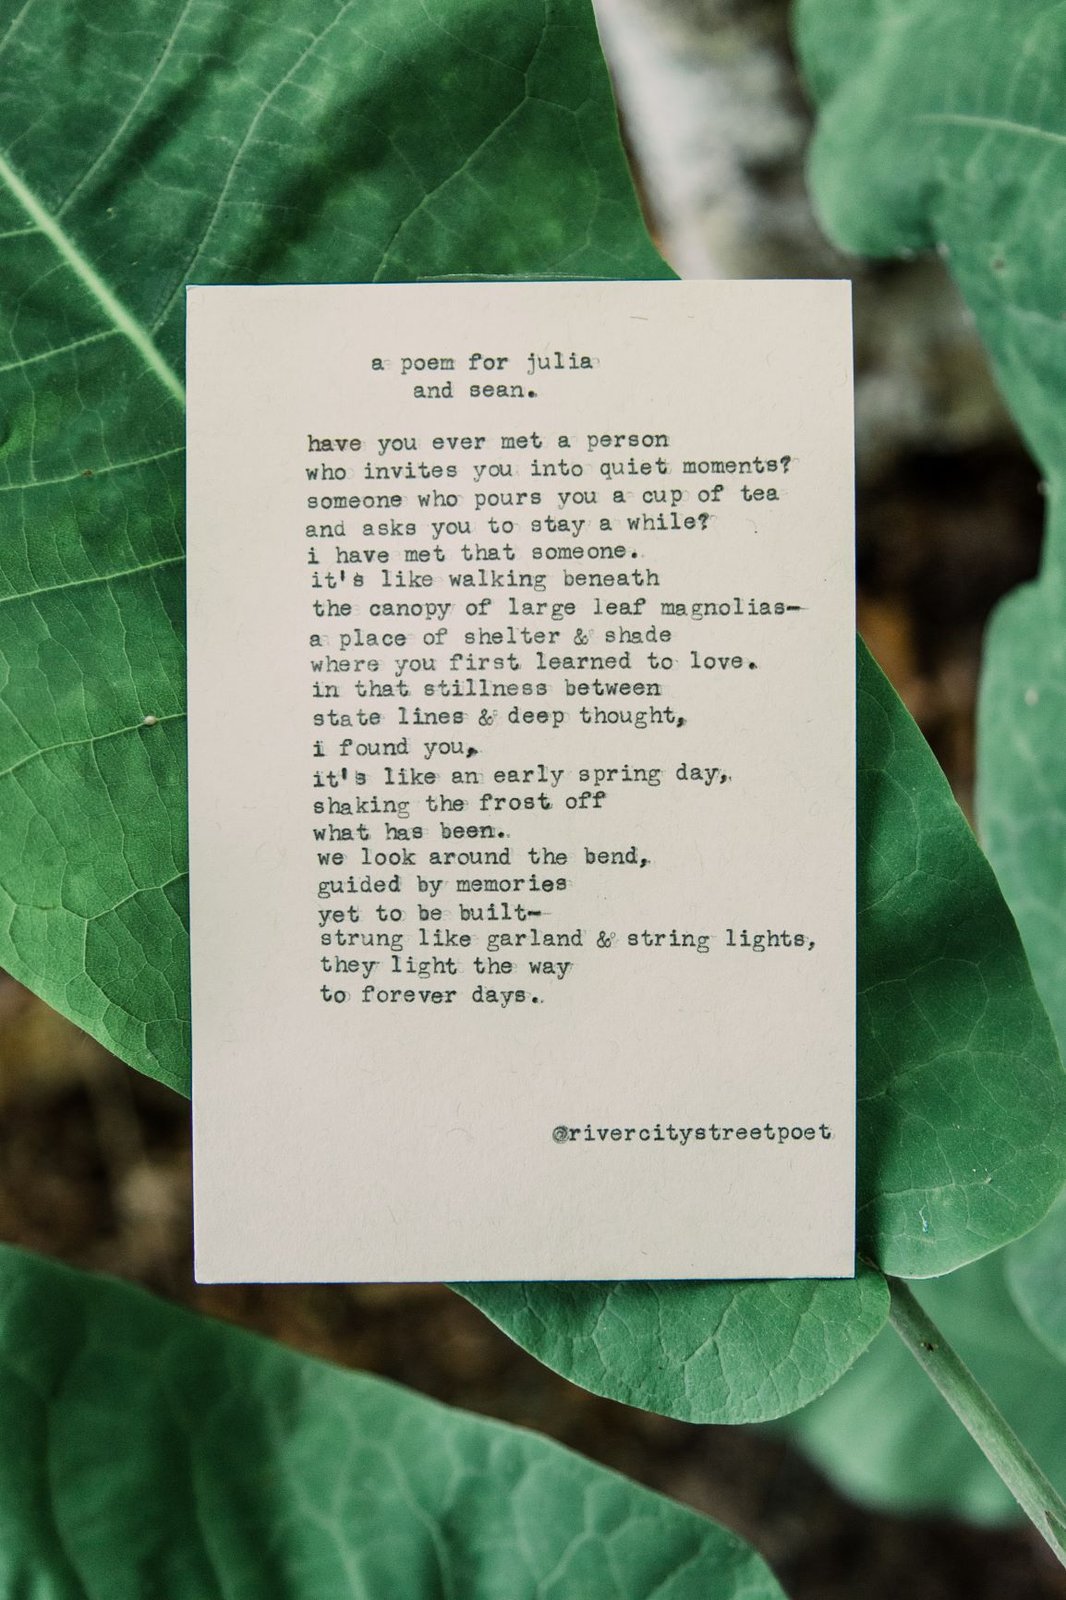 a poem for julia
and sean.
have you ever met a person
who invites you into quiet moments?
someone who pours you a cup of tea
and asks you to stay a while?
i have met that someone.
it's like walking beneath
the canopy of large leaf magnolias—
a place of shelter & shade
where you first learned to love.
in that stillness between
state lines & deep thought,
i found you,
it's like an early spring day,
shaking the frost off
what has been.
we look around the bend,
guided by memories
yet to be built—
strung like garland & string lights,
they light the way
to forever days.
@rivercitystreetpoet